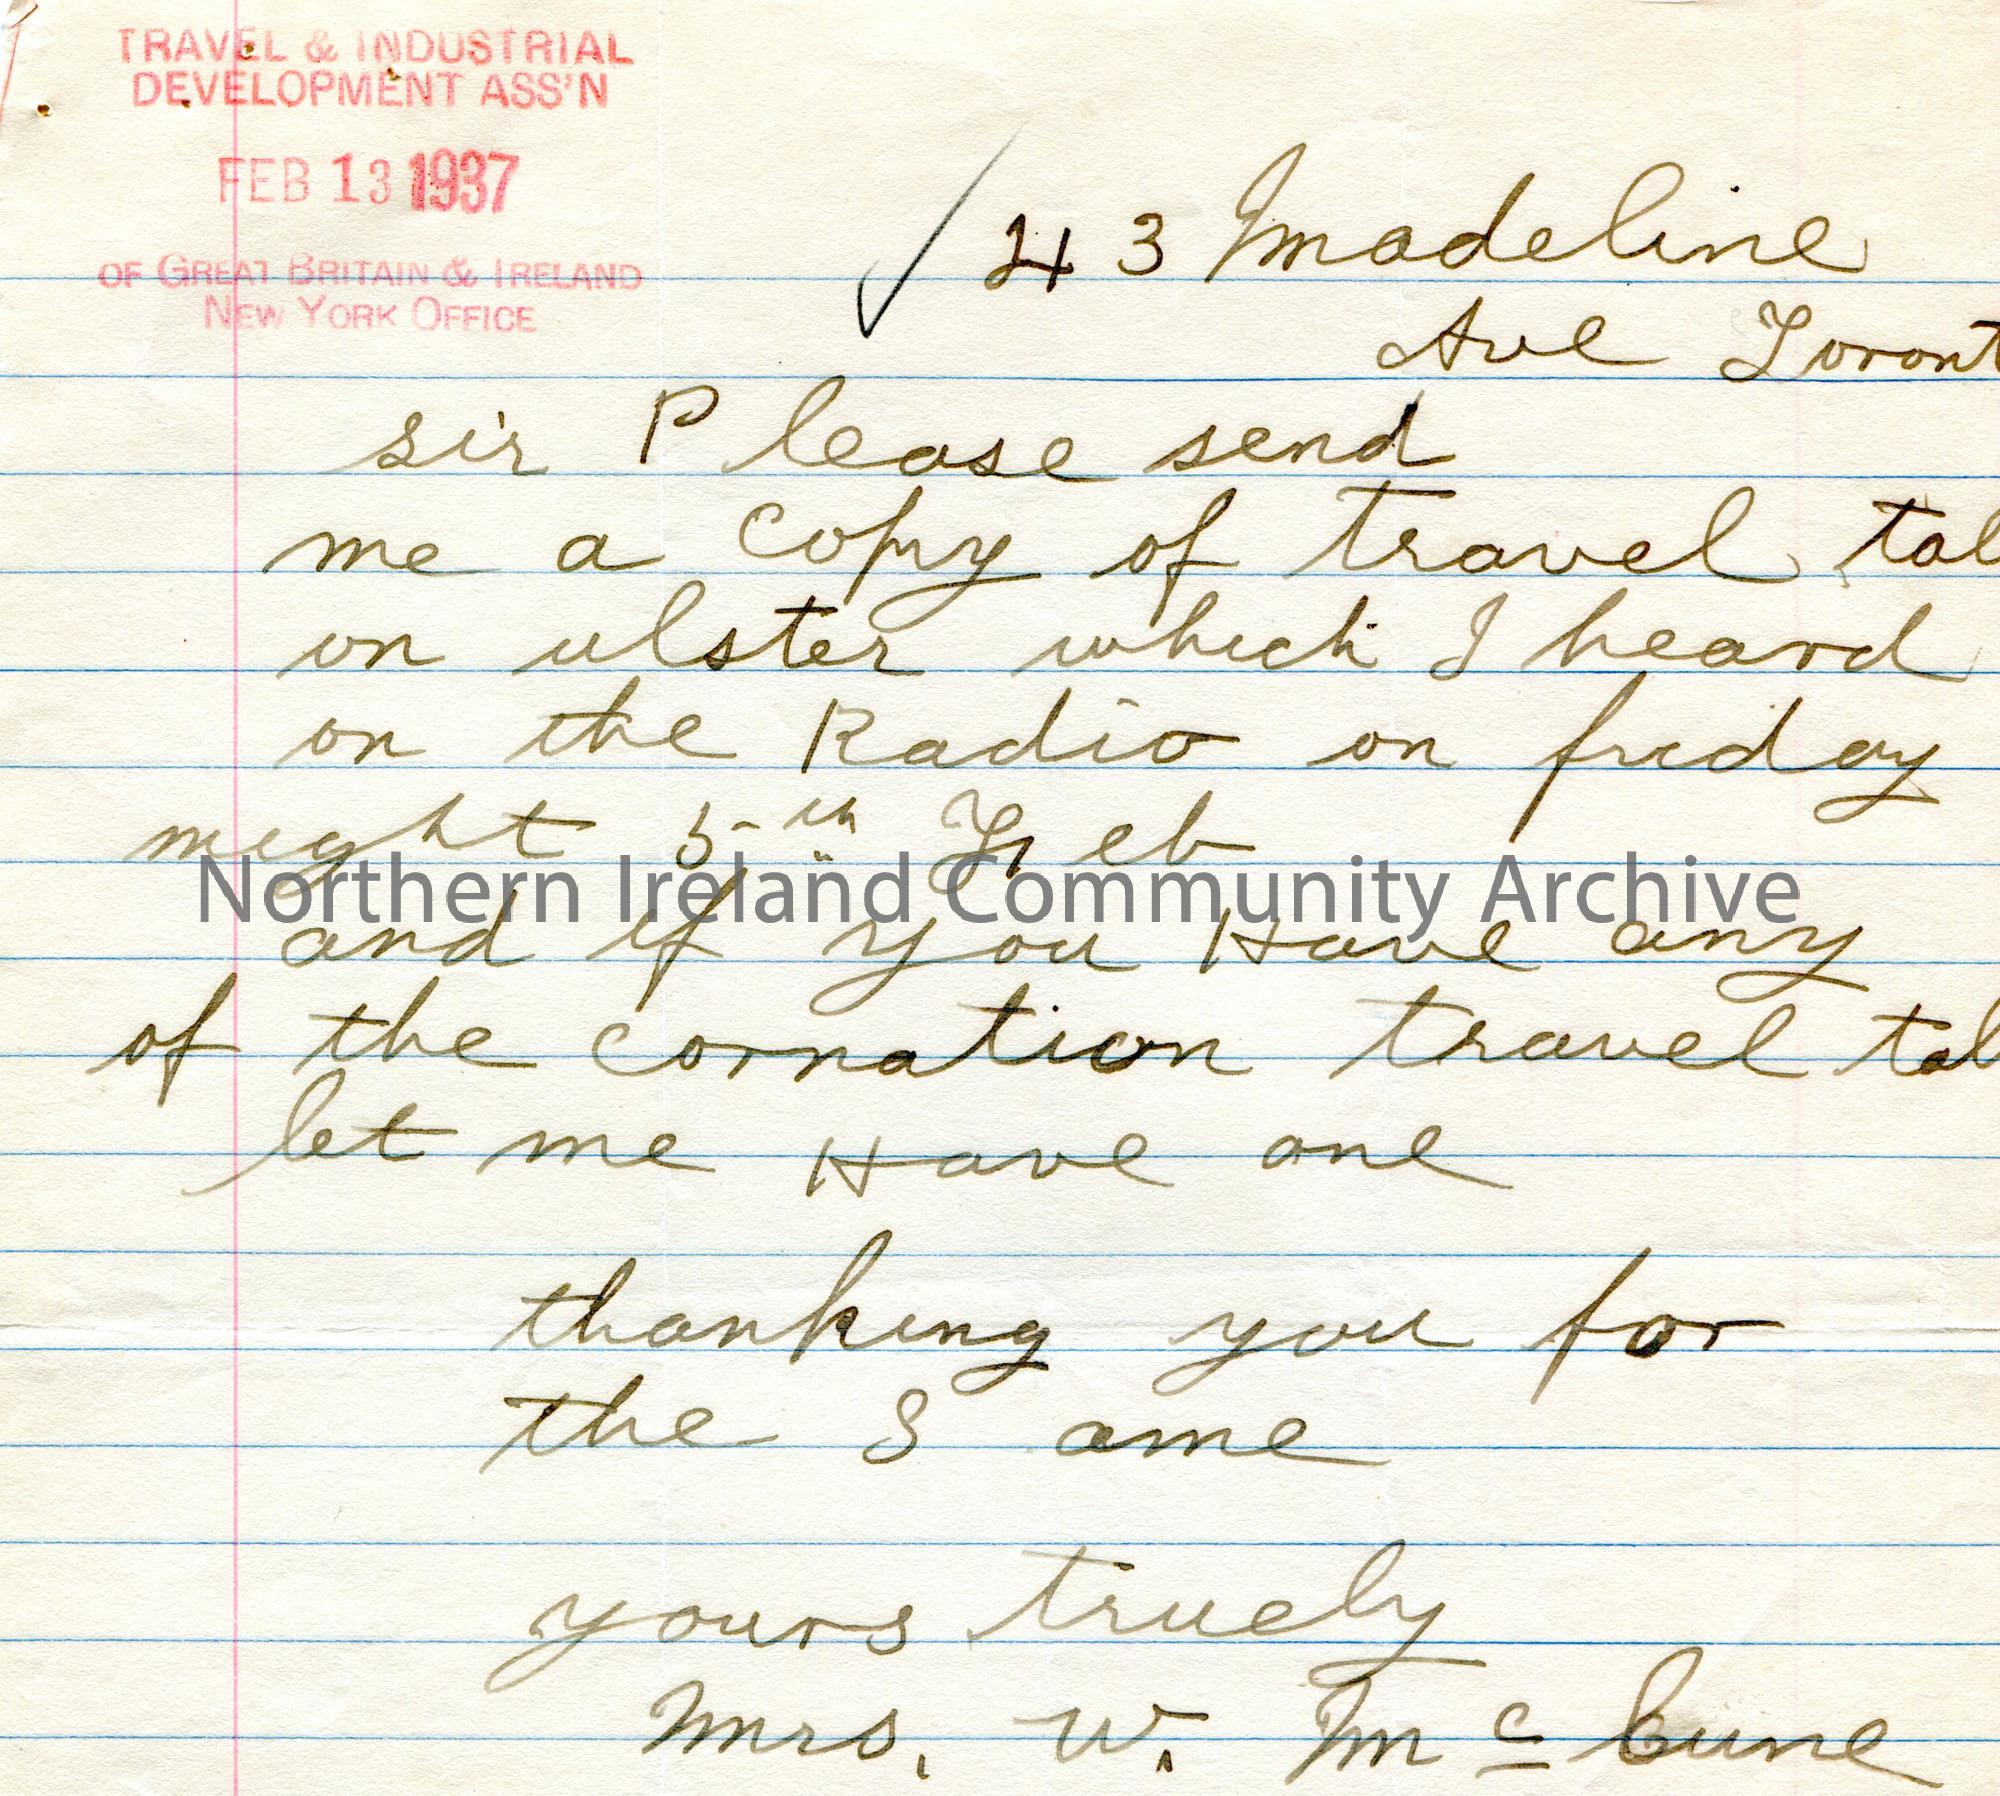 TRAVEL & INDUSTRIAL
DEVELOPMENT ASS'N
FEB 13 1937
OF GREAT BRITAIN & IRELAND
NEW YORK OFFICE
43 Madeline
Ave Toront
sir Please send
me a copy of travel tal
on ulster which I heard
on the Radio on friday
night 5th Feb
Northern Ireland Community Archive
and if you Have any
of the cornation travel tal
let me Have one
thanking you for
the Same
yours truely
Mrs. W. McCune